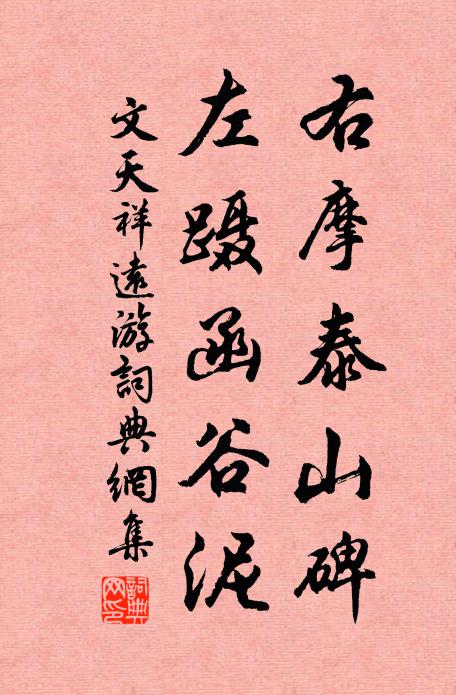 右摩泰山碑
左蹑函谷泥
文天祥遠游詞典網集
詞典网印